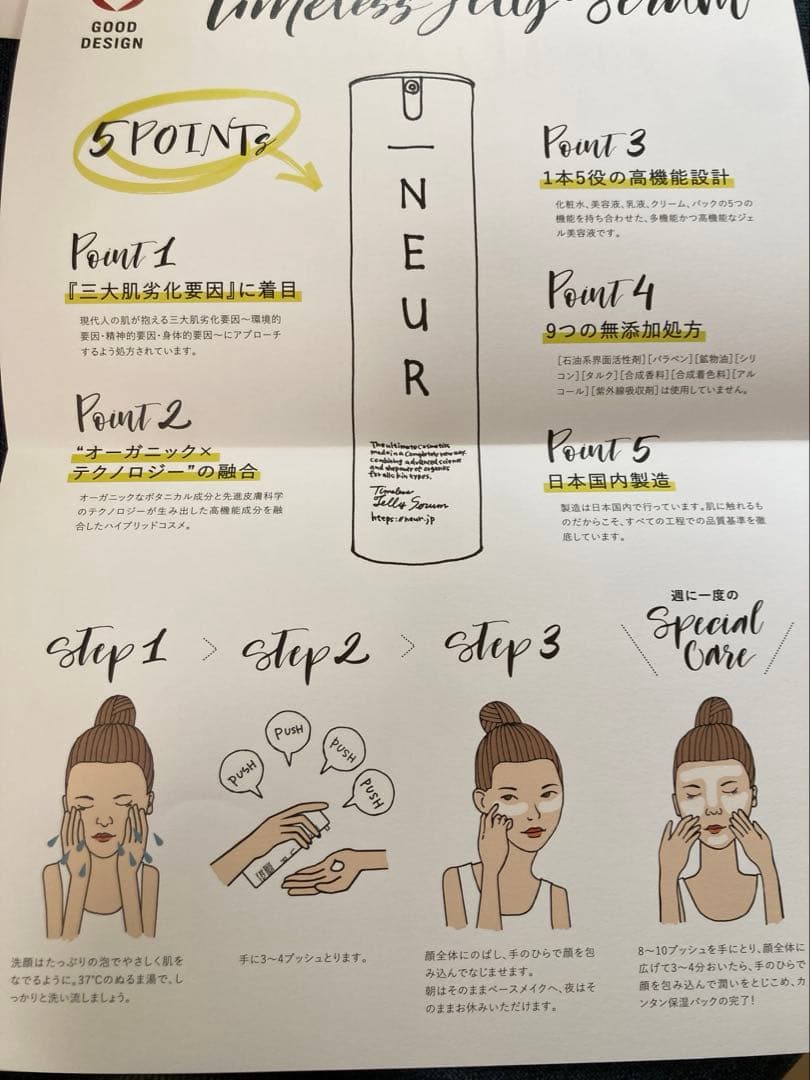 GOOD
DESIGN
Timeless Jelly Serum
5 POINTs
Point 1
『三大肌劣化要因』に着目
現代人の肌が抱える三大肌劣化要因〜環境的
要因・精神的要因・身体的要因〜にアプローチ
するよう処方されています。
Point 2
“オーガニック×
テクノロジー”の融合
オーガニックなボタニカル成分と先進皮膚科学
のテクノロジーが生み出した高機能成分を融
合したハイブリッドコスメ。
NEUR
The ultimate cosmetics
made in a completely new way,
combining advanced science
and the power of organics
for all skin types.
Timeless
Jelly Serum
https://neur.jp
Point 3
1本5役の高機能設計
化粧水、美容液、乳液、クリーム、パックの5つの
機能を持ち合わせた、多機能かつ高機能なジェ
ル美容液です。
Point 4
9つの無添加処方
[石油系界面活性剤][パラベン][鉱物油][シリ
コン][タルク][合成香料][合成着色料][アル
コール][紫外線吸収剤]は使用していません。
Point 5
日本国内製造
製造は日本国内で行っています。肌に触れるも
のだからこそ、すべての工程での品質基準を徹
底しています。
Step 1
Step 2
Step 3
週に一度の
Special
Care
PUSH
PUSH
PUSH
PUSH
洗顔はたっぷりの泡でやさしく肌を
なでるように。37℃のぬるま湯で、し
っかりと洗い流しましょう。
手に3〜4プッシュとります。
顔全体にのばし、手のひらで顔を包
み込んでなじませます。
朝はそのままベースメイクへ、夜はそ
のままお休みいただけます。
8〜10プッシュを手にとり、顔全体に
広げて3〜4分おいたら、手のひらで
顔を包み込んで潤いをとじこめ、カ
ンタン保湿パックの完了!